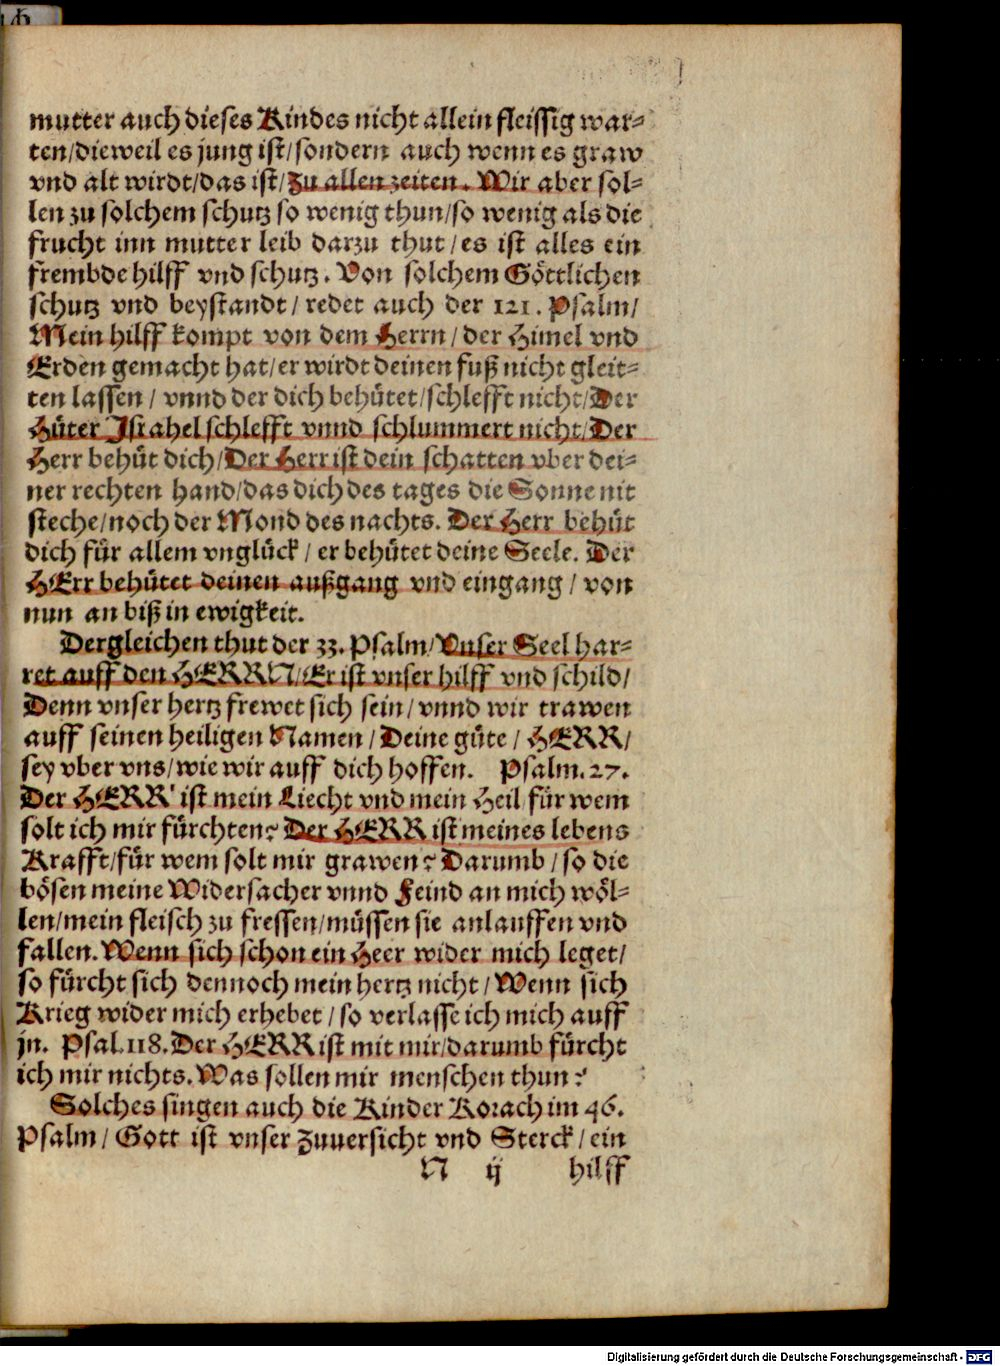 mutter auch dieses Kindes nicht allein fleissig war⸗
ten/dieweil es jung ist/sondern auch wenn es graw
vnd alt wirdt/das ist/zu allen zeiten. Wir aber sol⸗
len zu solchem schutz so wenig thun/so wenig als die
frucht inn mutter leib darzu thut/es ist alles ein
frembde hilff vnd schutz. Von solchem Göttlichen
schutz vnd beystandt/redet auch der 121. Psalm/
Mein hilff kompt von dem Herrn/der Himel vnd
Erden gemacht hat/er wirdt deinen fuß nicht gleit⸗
ten lassen/vnnd der dich behütet/schlefft nicht/Der
Hüter Israhel schlefft vnnd schlummert nicht/Der
Herr behüt dich/Der Herr ist dein schatten vber dei⸗
ner rechten hand/das dich des tages die Sonne nit
steche/noch der Mond des nachts. Der Herr behüt
dich für allem vnglück/er behütet deine Seele. Der
HErr behütet deinen außgang vnd eingang/von
nun an biß in ewigkeit.
Dergleichen thut der 33. Psalm/Vnser Seel har⸗
ret auff den HERRN/Er ist vnser hilff vnd schild/
Denn vnser hertz frewet sich sein/vnnd wir trawen
auff seinen heiligen Namen/Deine güte/HERR/
sey vber vns/wie wir auff dich hoffen. Psalm. 27.
Der HERR ist mein Liecht vnd mein Heil für wem
solt ich mir fürchten? Der HERR ist meines lebens
Krafft/für wem solt mir grawen? Darumb/so die
bösen meine Widersacher vnnd Feind an mich wöl⸗
len/mein fleisch zu fressen/müssen sie anlauffen vnd
fallen. Wenn sich schon ein Heer wider mich leget/
so fürcht sich dennoch mein hertz nicht/Wenn sich
Krieg wider mich erhebet/so verlasse ich mich auff
jn. Psal. 118. Der HERR ist mit mir/darumb fürcht
ich mir nichts. Was sollen mir menschen thun?
Solches singen auch die Kinder Korach im 46.
Psalm/Gott ist vnser Zuuersicht vnd Sterck/ein
N ij hilff
Digitalisierung gefördert durch die Deutsche Forschungsgemeinschaft - DFG